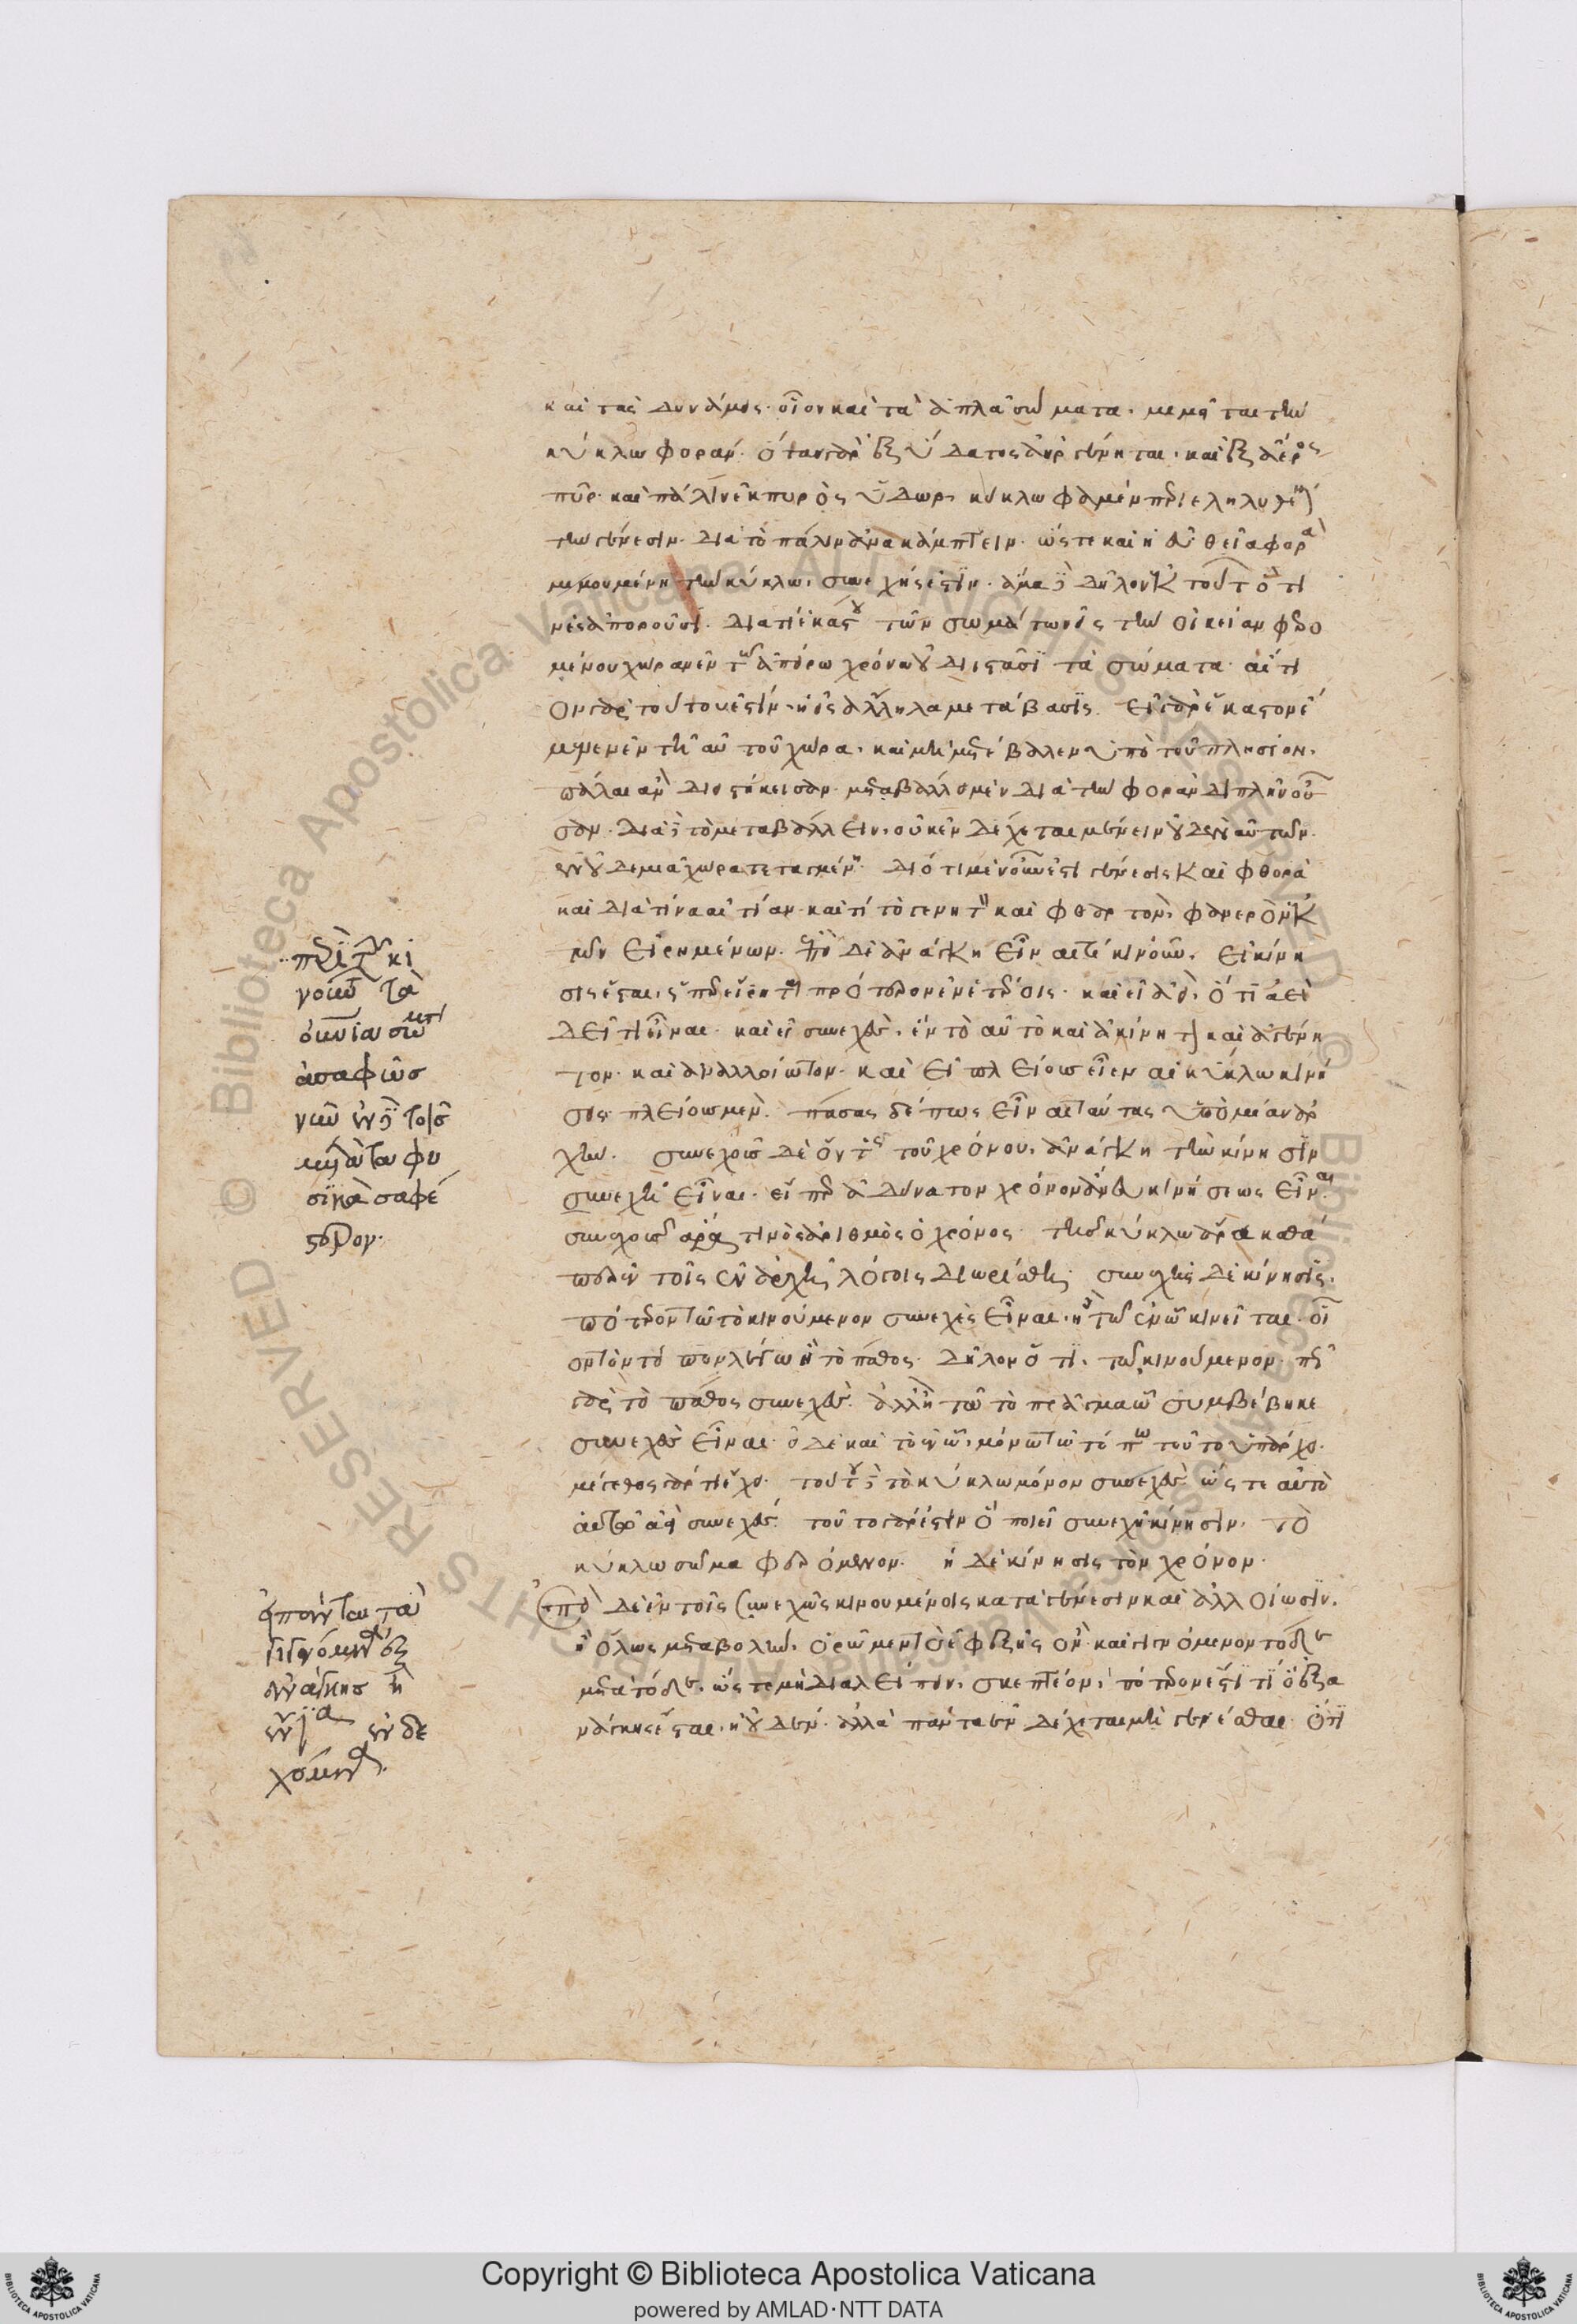 καὶ τὰς δυνάμεις· οἷον καὶ τὰ ἁπλᾶ σώματα· μιμεῖται τὴν
κύκλω φοράν· ὅταν γὰρ ἐξ ὕδατος ἀὴρ γένηται· καὶ ἐξ ἀέρος
πῦρ· καὶ πάλιν ἐκ πυρὸς ὕδωρ· κύκλω φαμὲν περιεληλυθέναι
τὴν γένεσιν· διὰ τὸ πάλιν ἀνακάμπτειν· ὥστε καὶ ἡ εὐθεῖα φορὰ
μιμουμένη τὴν κύκλω, συνεχής ἐστιν· ἅμα δὲ δῆλον ἐκ τούτων ὅ τι
νὲς ἀποροῦσι· διὰ τί ἑκάστου τῶν σωμάτων εἰς τὴν οἰκείαν φερο
μένου χώραν ἐν τῶ ἀπείρω χρόνω οὐ διεστᾶσι τὰ σώματα· αἴτι
ον γὰρ τούτου ἐστὶν· ἡ εἰς ἄλληλα μετάβασις· εἰ γὰρ ἕκαστον ἔ
μενεν ἐν τῆ αὑτοῦ χώρα· καὶ μὴ μετέβαλλεν ὑπὸ τοῦ πλησίον·
πάλαι ἂν διεστήκεισαν· μεταβάλλει μὲν διὰ τὴν φορὰν διπλῆν οὖ
σαν· διὰ δὲ τὸ μεταβάλλειν, οὐκ ἐνδέχεται μένειν οὐδὲν αὐτῶν
ἐν οὐδεμιᾶ χώρα τεταγμένη· διότι μὲν οὖν ἐστι γένεσις καὶ φθορὰ
καὶ διὰ τίνα αἰτίαν· καὶ τί τὸ γενητὸν καὶ φθαρτὸν, φανερὸν ἐκ
τῶν εἰρημένων· ἐπεὶ δὲ ἀνάγκη εἶναι τὸ κινοῦν, εἰ κίνη
σις ἔσται, ὥσπερ εἴρηται πρότερον ἐν ἑτέροις· καὶ εἰ ἀεὶ, ὅτι ἀεὶ
δεῖ τι εἶναι· καὶ εἰ συνεχὴς, ἓν τὸ αὐτὸ καὶ ἀκίνητον καὶ ἀγένη
τον· καὶ ἀναλλοίωτον· καὶ εἰ πλείους εἶεν αἱ κύκλω κινή
σεις· πλείους μὲν· πάσας δέ πως εἶναι ταύτας ὑπὸ μίαν ἀρ
χήν· συνεχοῦς δὲ ὄντος τοῦ χρόνου, ἀνάγκη τὴν κίνησιν
συνεχῆ εἶναι· εἴπερ ἀδύνατον χρόνον ἄνευ κινήσεως εἶναι
συνεχοῦς ἄρα τινὸς ἀριθμὸς ὁ χρόνος· τῆς κύκλω ἄρα καθά
περ ἐν τοῖς ἐν ἀρχῆ λόγοις διωρίσθη· συνεχὴς δὲ κίνησις,
πότερον τῶ τὸ κινούμενον συνεχὲς εἶναι, ἢ τῶ ἐν ὧ κινεῖται· οἷ
ον τὸν τόπον λέγω ἢ τὸ πάθος· δῆλον ὅτι, τῶ κινούμενον· πῶς
γὰρ τὸ πάθος συνεχὲς· ἀλλ' ἢ τῶ τὸ πρᾶγμα ὧ συμβέβηκε
συνεχὲς εἶναι· εἰ δὲ καὶ τὸ ἐν ὧ, μόνω τῶ τόπω τοῦτο ὑπάρχει·
μέγεθος γάρ τι ἔχει· τούτου δὲ τὸ κύκλω μόνον συνεχὲς ὥστε αὐτὸ
αὑτῶ ἀεὶ συνεχές· τοῦτο γάρ ἐστιν ὃ ποιεῖ συνεχῆ κίνησιν, τὸ
κύκλω σῶμα φερόμενον· ἡ δὲ κίνησις τὸν χρόνον·
ἐπεὶ δὲ ἐν τοῖς συνεχῶς κινουμένοις κατὰ γένεσιν καὶ ἀλλοίωσιν·
ἢ ὅλως μεταβολὴν, ὁρῶμεν τὸ ἐφεξῆς ὂν καὶ γινόμενον τόδε
μετὰ τόδε, ὥστε μὴ διαλείπειν, σκεπτέον, πότερον ἔστι τι ὃ ἐξ ἀ
νάγκης ἔσται, ἢ οὐδὲν· ἀλλὰ πάντα ἐνδέχεται μὴ γενέσθαι· ὅτι
περὶ τοῦ κι
νοῦν τὰ
οὐράνια
ἀσαφῶς
νῦν ἐν δὲ τοῖς
μετὰ τὰ φυ
σικὰ σαφέ
στερον·
τὰ
γινόμενα ἐξ
ἀνάγκης ἢ
ἔνια ἐνδε
χόμενα·
Copyright © Biblioteca Apostolica Vaticana
powered by AMLAD·NTT DATA